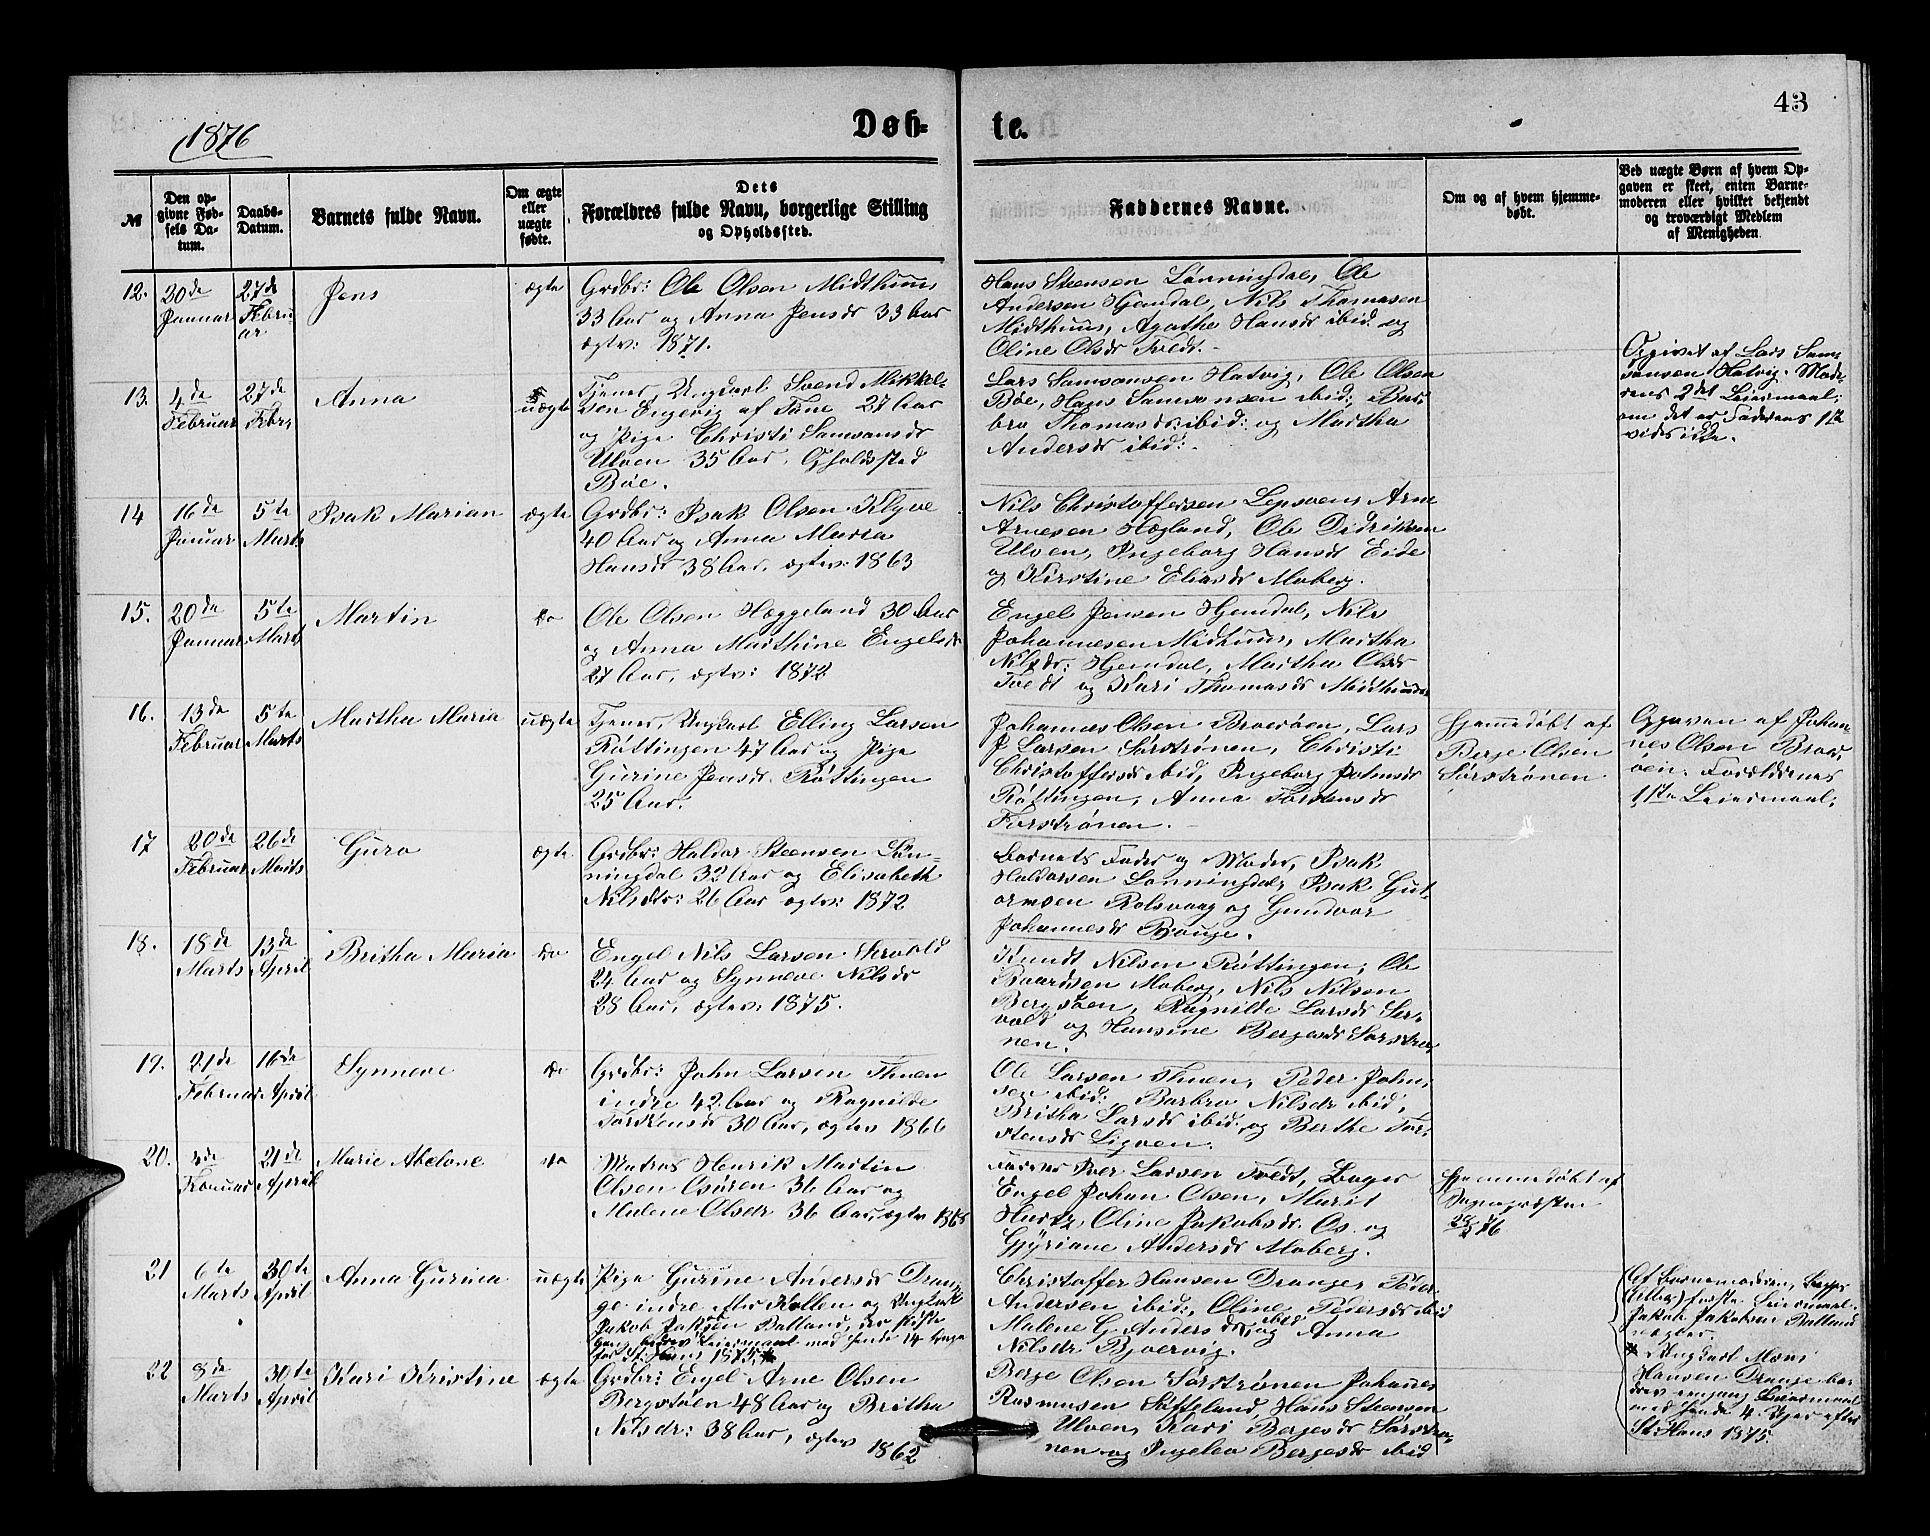 43
1876
Døb-
te.
№
Den op-
givne Fød-
sels Da-
tum.
Daabs-
Datum.
Barnets fulde Navn.
Om ægte
eller
uægte
fødte.
Dets
Forældres fulde Navn, borgerlige Stilling
og Opholdssted.
Faddernes Navne.
Om og af hvem hjemme-
døbt.
Ved uægte Børn af hvem Op-
gaven er skeet, enten Barne-
moderen eller hvilket bekjendt
og troværdigt Medlem
af Menigheden.
12.
20de
Januar
27de
Febru-
ar
Jens
ægte
Grdbr: Ole Olsen Midthuun
33 Aar og Anna Jensdr 33 Aar
ægtv: 1871.
Hans Steensen Lønningdal, Ole
Andersen Hjemdal, Nils Thomasen
Midthuun, Agathe Hansdr ibid og
Oline Olsdr Tvedt.
13.
4de
Februar
27de
Febr.
Anna
uægte
Tjener, Ungkarl Svend Mikkel-
sen af 27 Aar
og Pige Christi Samsonsdr
Ulven 35 Aar, Opholdssted
Bøe.
Lars Samsonsen Hatvig, Ole Olsen
Bøe, Hans Samsonsen ibid:, Bar-
bro Thomasdr: ibid: og Martha
Andersdr ibid:
Opgivet af Lars Sam-
sonsen Hatvig. Mode-
rens 2det Leiermaal;
om det er Faderens 1ste
vides ikke.
14
16de
Januar
5te
Marts
Isak Marian
ægte
Grdbr: Isak Olsen Klyve
40 Aar og Anna Maria
Hansdr 38 Aar, ægtv: 1863
Nils Christoffersen Lepsøen, Arne
Arnesen Hægland, Ole Didriksen
Ulven, Ingeborg Hansdr Eide
og Kirstine Eliasdr Moberg.
15.
20de
Januar
5te
Marts
Martin
do
Ole Olsen Hæggeland 30 Aar
og Anna Marthine Engelsdr
27 Aar, ægtv: 1872
Engel Jensen Hjemdal, Nils
Johannesen Midthuun, Martha
Nilsdr: Hjemdal, Martha Olsdr
Tvedt og Kari Thomasdr Midthuun
16.
13de
Februar
5te
Marts
Martha Maria
uægte
Tjener, Ungkarl Elling Larsen
Røttingen 47 Aar og Pige
Gurine Jensdr. Røttingen
25 Aar.
Johannes Olsen Broesøen, Lars
J Larsen Sørstrønen, Christi
Christoffersdr ibid, Ingeborg Johnsdr
Røttingen, Anna Torstensdr
Forstrønen.
Hjemmedøbt af
Berge Olsen
Sørstrønen
Opgaven af Johan-
nes Olsen Broes-
øen. Forældrenes
1ste Leiermaal,
17
20de
Februar
26de
Marts
Guro
ægte
Grdbr: Haldor Steensen Løn-
ningdal 32 Aar og Elisabeth
Nilsdtr: 26 Aar ægtv: 1872
Barnets Fader og Moder, Isak
Haldorsen Lønningdal, Isak Gut-
ormsen Rolsvaag og Gundvor
Johannesdr Bouge.
18.
18de
Marts
13de
April
Britha Maria
do
Engel Nils Larsen Hervold
24 Aar og Synneve Nilsdr
28 Aar, ægtv: 1875.
Knudt Nilsen Røttingen, Ole
Baardsen Moberg, Nils Nilsen
Bergstøen, Ragnilde Larsdr Ser-
vold og Hansine Bergesdr Sørstrø-
nen.
19.
21de
Februar
16de
April
Synneve
do
Grdbr: John Larsen Thuen
indre 42 Aar og Ragnilde
Torstensdr 30 Aar, ægtv 1866
Ole Larsen Thuen, Peder John-
sen ibid: Barbro Nilsdr ibid,
Britha Larsdr ibid. og Berthe Tor-
stensdr Ligven.
20.
21de
April
Marie Abelone
do
Matros Henrik Martin
Olsen Osøren 36 Aar og
Malene Olsdr 36 Aar, ægtv 1868
Iver Larsen Tvedt, Bager
Engel Johan Olsen, Marit
Hurtz, Oline Jakobsdr. Os. og
Gjyriane Andersdr Moberg.
Hjemmedøbt af
Sognepræsten
21
6te
Marts
30te
April
Anna Gurina
uægte
Pige Gurine Andersdr Drange
indre efter Kollen og Ungkarl
Jakob Jakobsen Balland,
med hende 14 Dage
før St. Hans 1875. *
Christoffer Hansen Drange, Peder
Andersen ibid:, Oline Pedersdr ibid
Malene G Andersdr ibid og Anna
Nilsdr Bjørvig.
Af Barnemoderen,
første Leiermaal.
Jakob Jakobsen Balland
nægter.
* Ungkarl Mons
Hansen Drange har
engang Leiermaal
med hende 4 Uger efter
St. Hans 1875.
22
8de
Marts
30te
April
Kari Kristine
ægte
Grdbr: Engel Arne Olsen
Bergstøen 48 Aar og Britha
Nilsdr: 38 Aar, ægtv
1862
Berge Olsen Sørstrønen Johannes
Rasmusen Søfteland, Hans Steensen
Ulven, Kari Bergesdr Sørstrø-
nen og Ingelea Bergesdr ibid